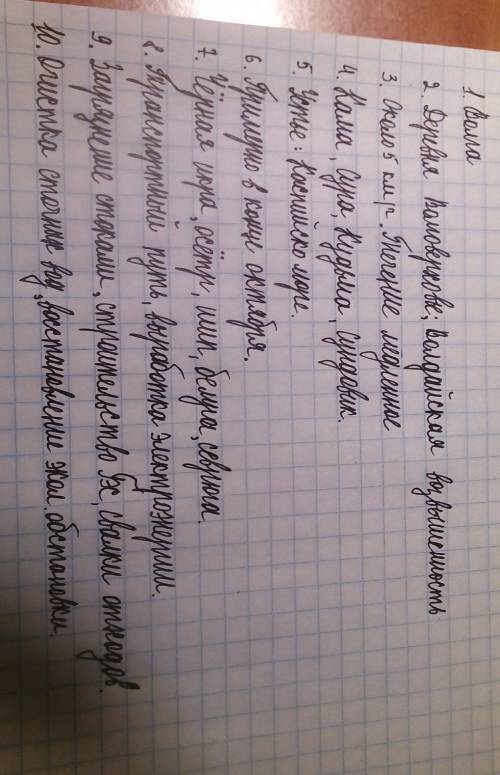 1 Волга
2. Деревня Волговерховье, Валдайская возвышенность
3. Около 5 км/ч. Течение медленное
4. Кама, Сура, Кудьма, Сундовик.
5. Устье: Каспийско море.
6. Примерно в конце октября.
7. Чёрная икра, осётр, шип, белуга, севрюга.
8. Транспортный путь, выработка электроэнергии.
9. Загрязнение стоками, строительство, свалки отходов.
10. Очистка сточных вод, восстановление экол. обстановки.